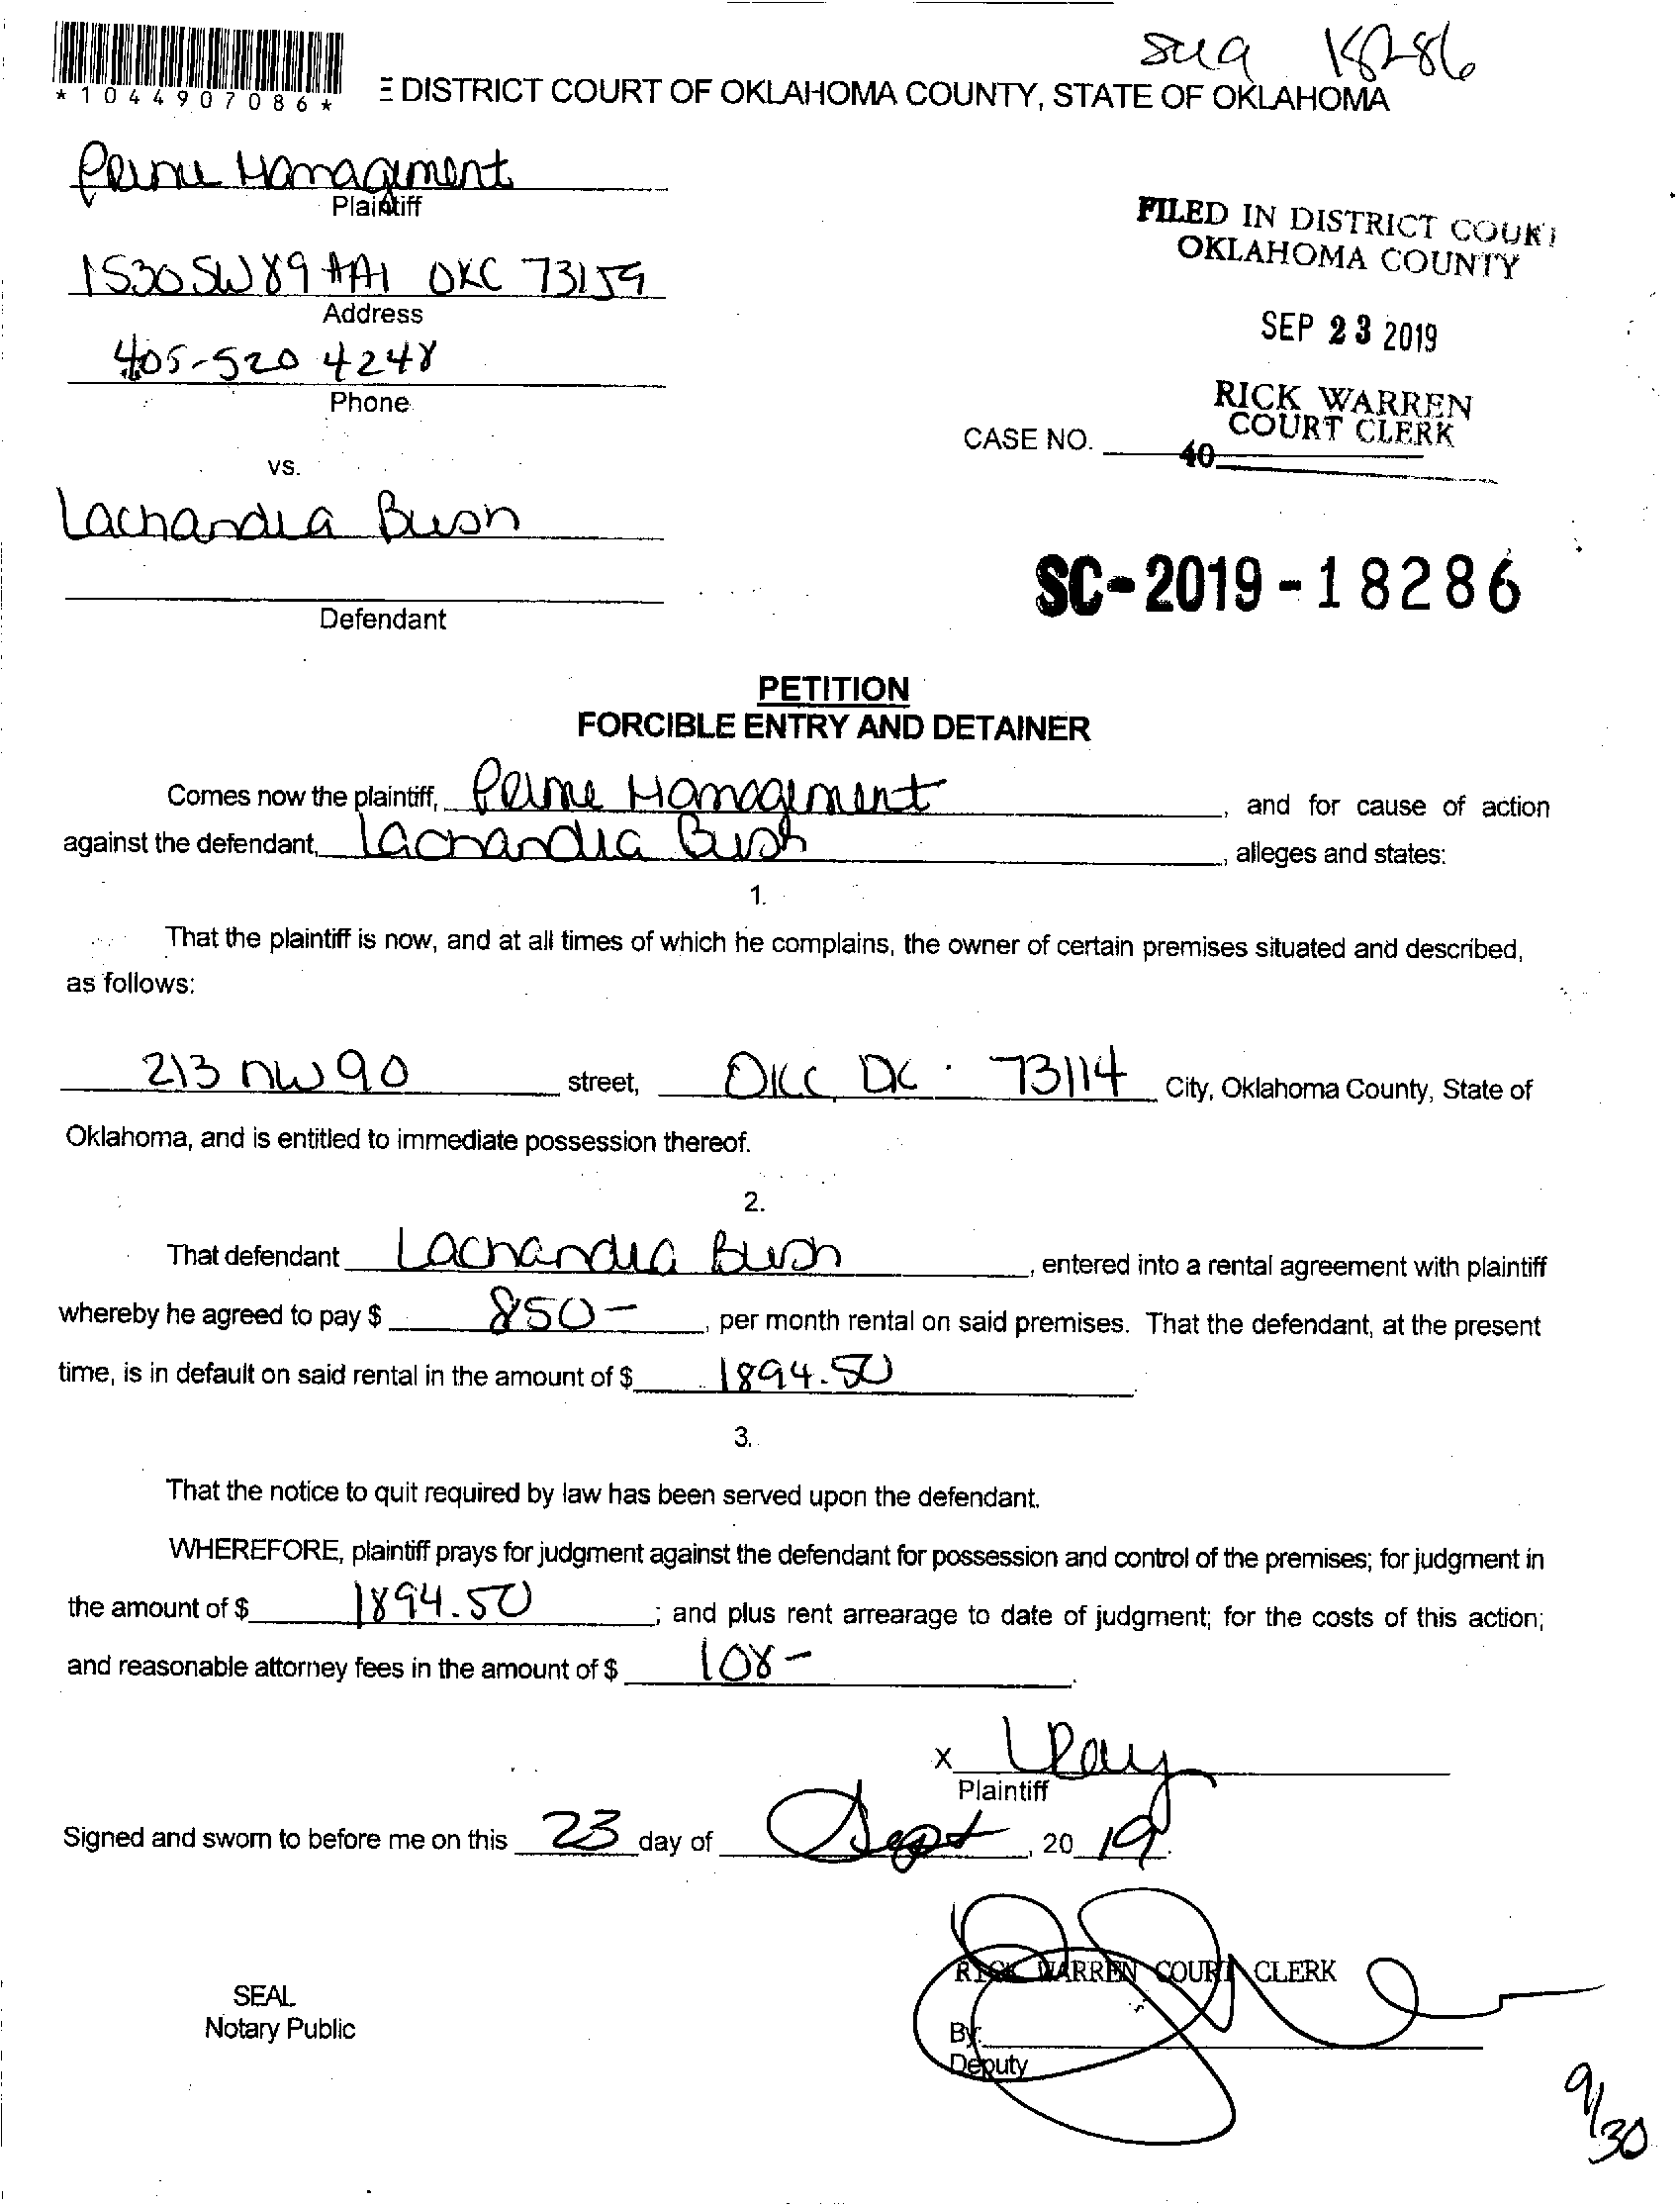 18286
*1044907086*
E DISTRICT COURT OF OKLAHOMA COUNTY, STATE OF OKLAHOMA
Prime Management
Plaintiff
1530 SW 89 #A1 OKC 73159
Address
405-520 4248
Phone
vs.
Lachandra Bush
Defendant
FILED IN DISTRICT COURT
OKLAHOMA COUNTY
SEP 23 2019
RICK WARREN
COURT CLERK
CASE NO.
40
SC-2019-18286
PETITION
FORCIBLE ENTRY AND DETAINER
Comes now the plaintiff, Prime Management, and for cause of action
against the defendant, Lachandra Bush, alleges and states:
1.
That the plaintiff is now, and at all times of which he complains, the owner of certain premises situated and described,
as follows:
213 NW 90 street, OKC OK. 73114 City, Oklahoma County, State of
Oklahoma, and is entitled to immediate possession thereof.
2.
That defendant Lachandra Bush, entered into a rental agreement with plaintiff
whereby he agreed to pay $ 850-, per month rental on said premises. That the defendant, at the present
time, is in default on said rental in the amount of $ 1894.50.
3.
That the notice to quit required by law has been served upon the defendant.
WHEREFORE, plaintiff prays for judgment against the defendant for possession and control of the premises; for judgment in
the amount of $ 1894.50; and plus rent arrearage to date of judgment; for the costs of this action;
and reasonable attorney fees in the amount of $ 108-.
X LRay
Plaintiff
Signed and sworn to before me on this 23 day of Sept, 20 19.
RICK WARREN COURT CLERK
SEAL
Notary Public
By:
Deputy
9/30